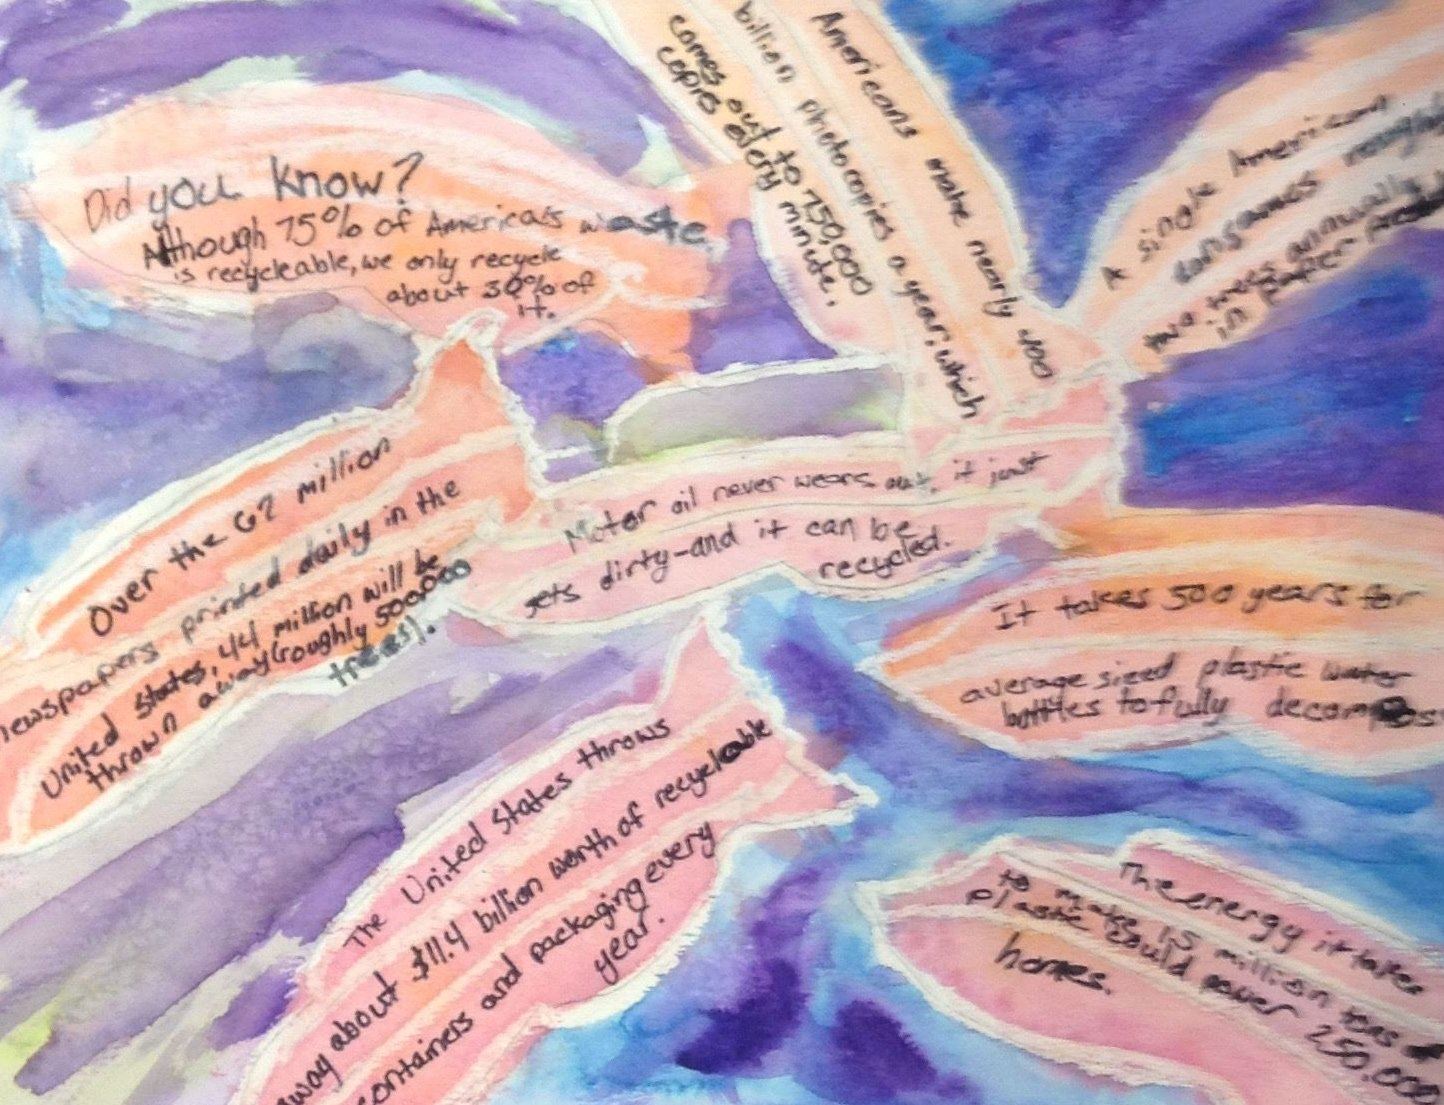 Did you know?
Although 75% of America's waste
is recycleable, we only recycle
about 30% of
it.
Americans make nearly 400
billion photocopies a year; which
comes out to 750,000
copies every minute.
A single American
consumes roughly
two trees annually
in paper
Over the 62 million
newspapers printed daily in the
United States, 44 million will be
thrown away (roughly 500,000
trees).
Motor oil never wears out, it just
gets dirty-and it can be
recycled.
It takes 500 years for
average sized plastic water
bottles to fully decompos
The United States throws
away about $11.4 billion worth of recycleable
containers and packaging every
year.
The energy it takes
to make 1.5 million tons of
plastic could power 250,000
homes.